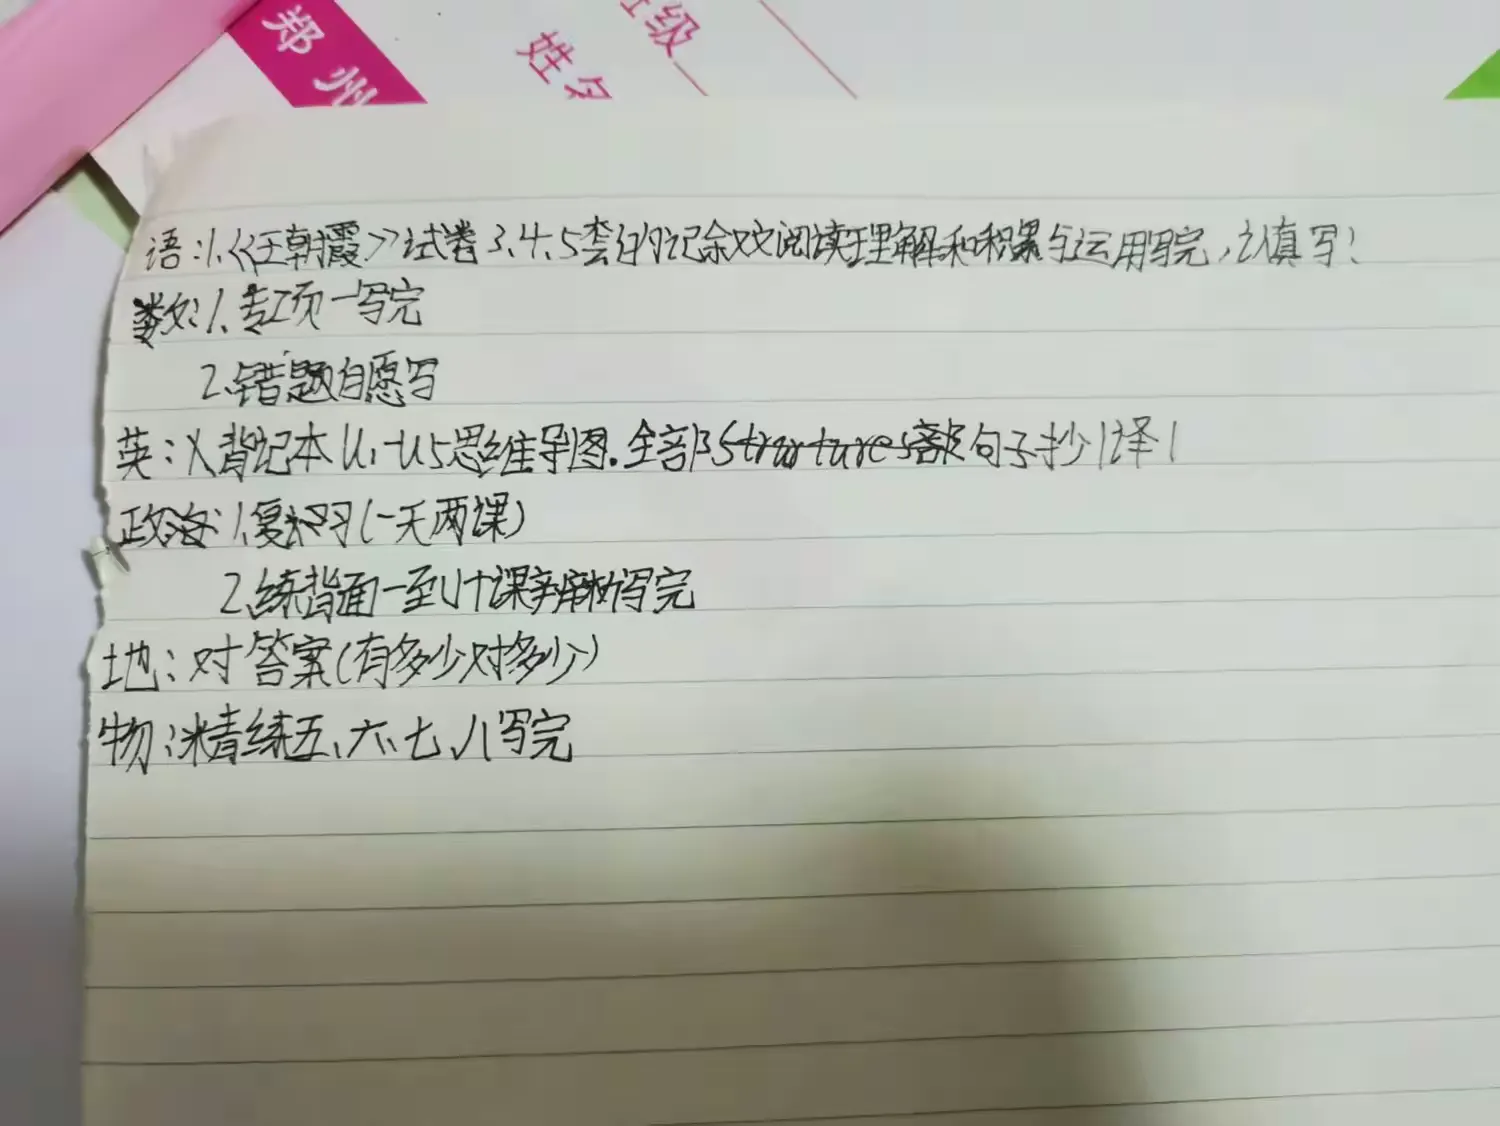 郑州
班级
姓名
语:1.《王朝霞》试卷3、4、5套的记叙文阅读理解和积累与运用写完,认真写!
数:1.专项一写完
2.错题自愿写
英:1.背记本U1-U5思维导图.全部Structures部分句子抄1译1
政治:1.复习(一天两课)
2.练背面一到十课辨析写完
地:对答案(有多少对多少)
物:精练五、六、七、八写完